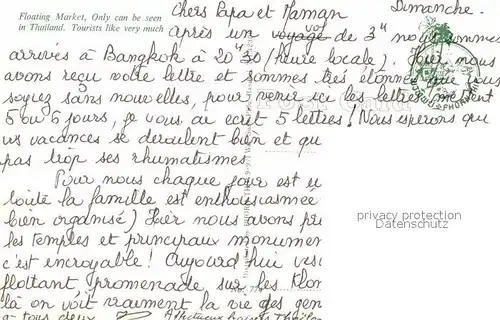 Floating Market, Only can be seen
in Thailand. Tourists like very much
Dimanche.
Chers Papa et Maman
après un voyage vol de 3H nous sommes
arrivés à Bangkok à 20H30 (heure locale). Hier nous
avons reçu votre lettre et sommes très étonnés que vous
soyez sans nouvelles, pour venir ici les lettres mettent
5 ou 6 jours, je vous ai écrit 5 lettres! Nous espérons que
vs vacances se déroulent bien et qu
pas trop ses rhumatismes
Pour nous chaque jour est u
toute la famille est enthousiasmée
bien organisé) Hier nous avons
les temples et principaux monumen
c'est incroyable! Aujourd'hui
flottant, promenade sur les Klon
là on voit vraiment la vie des gen
à tous deux Affectueux baisers
privacy protection
Datenschutz